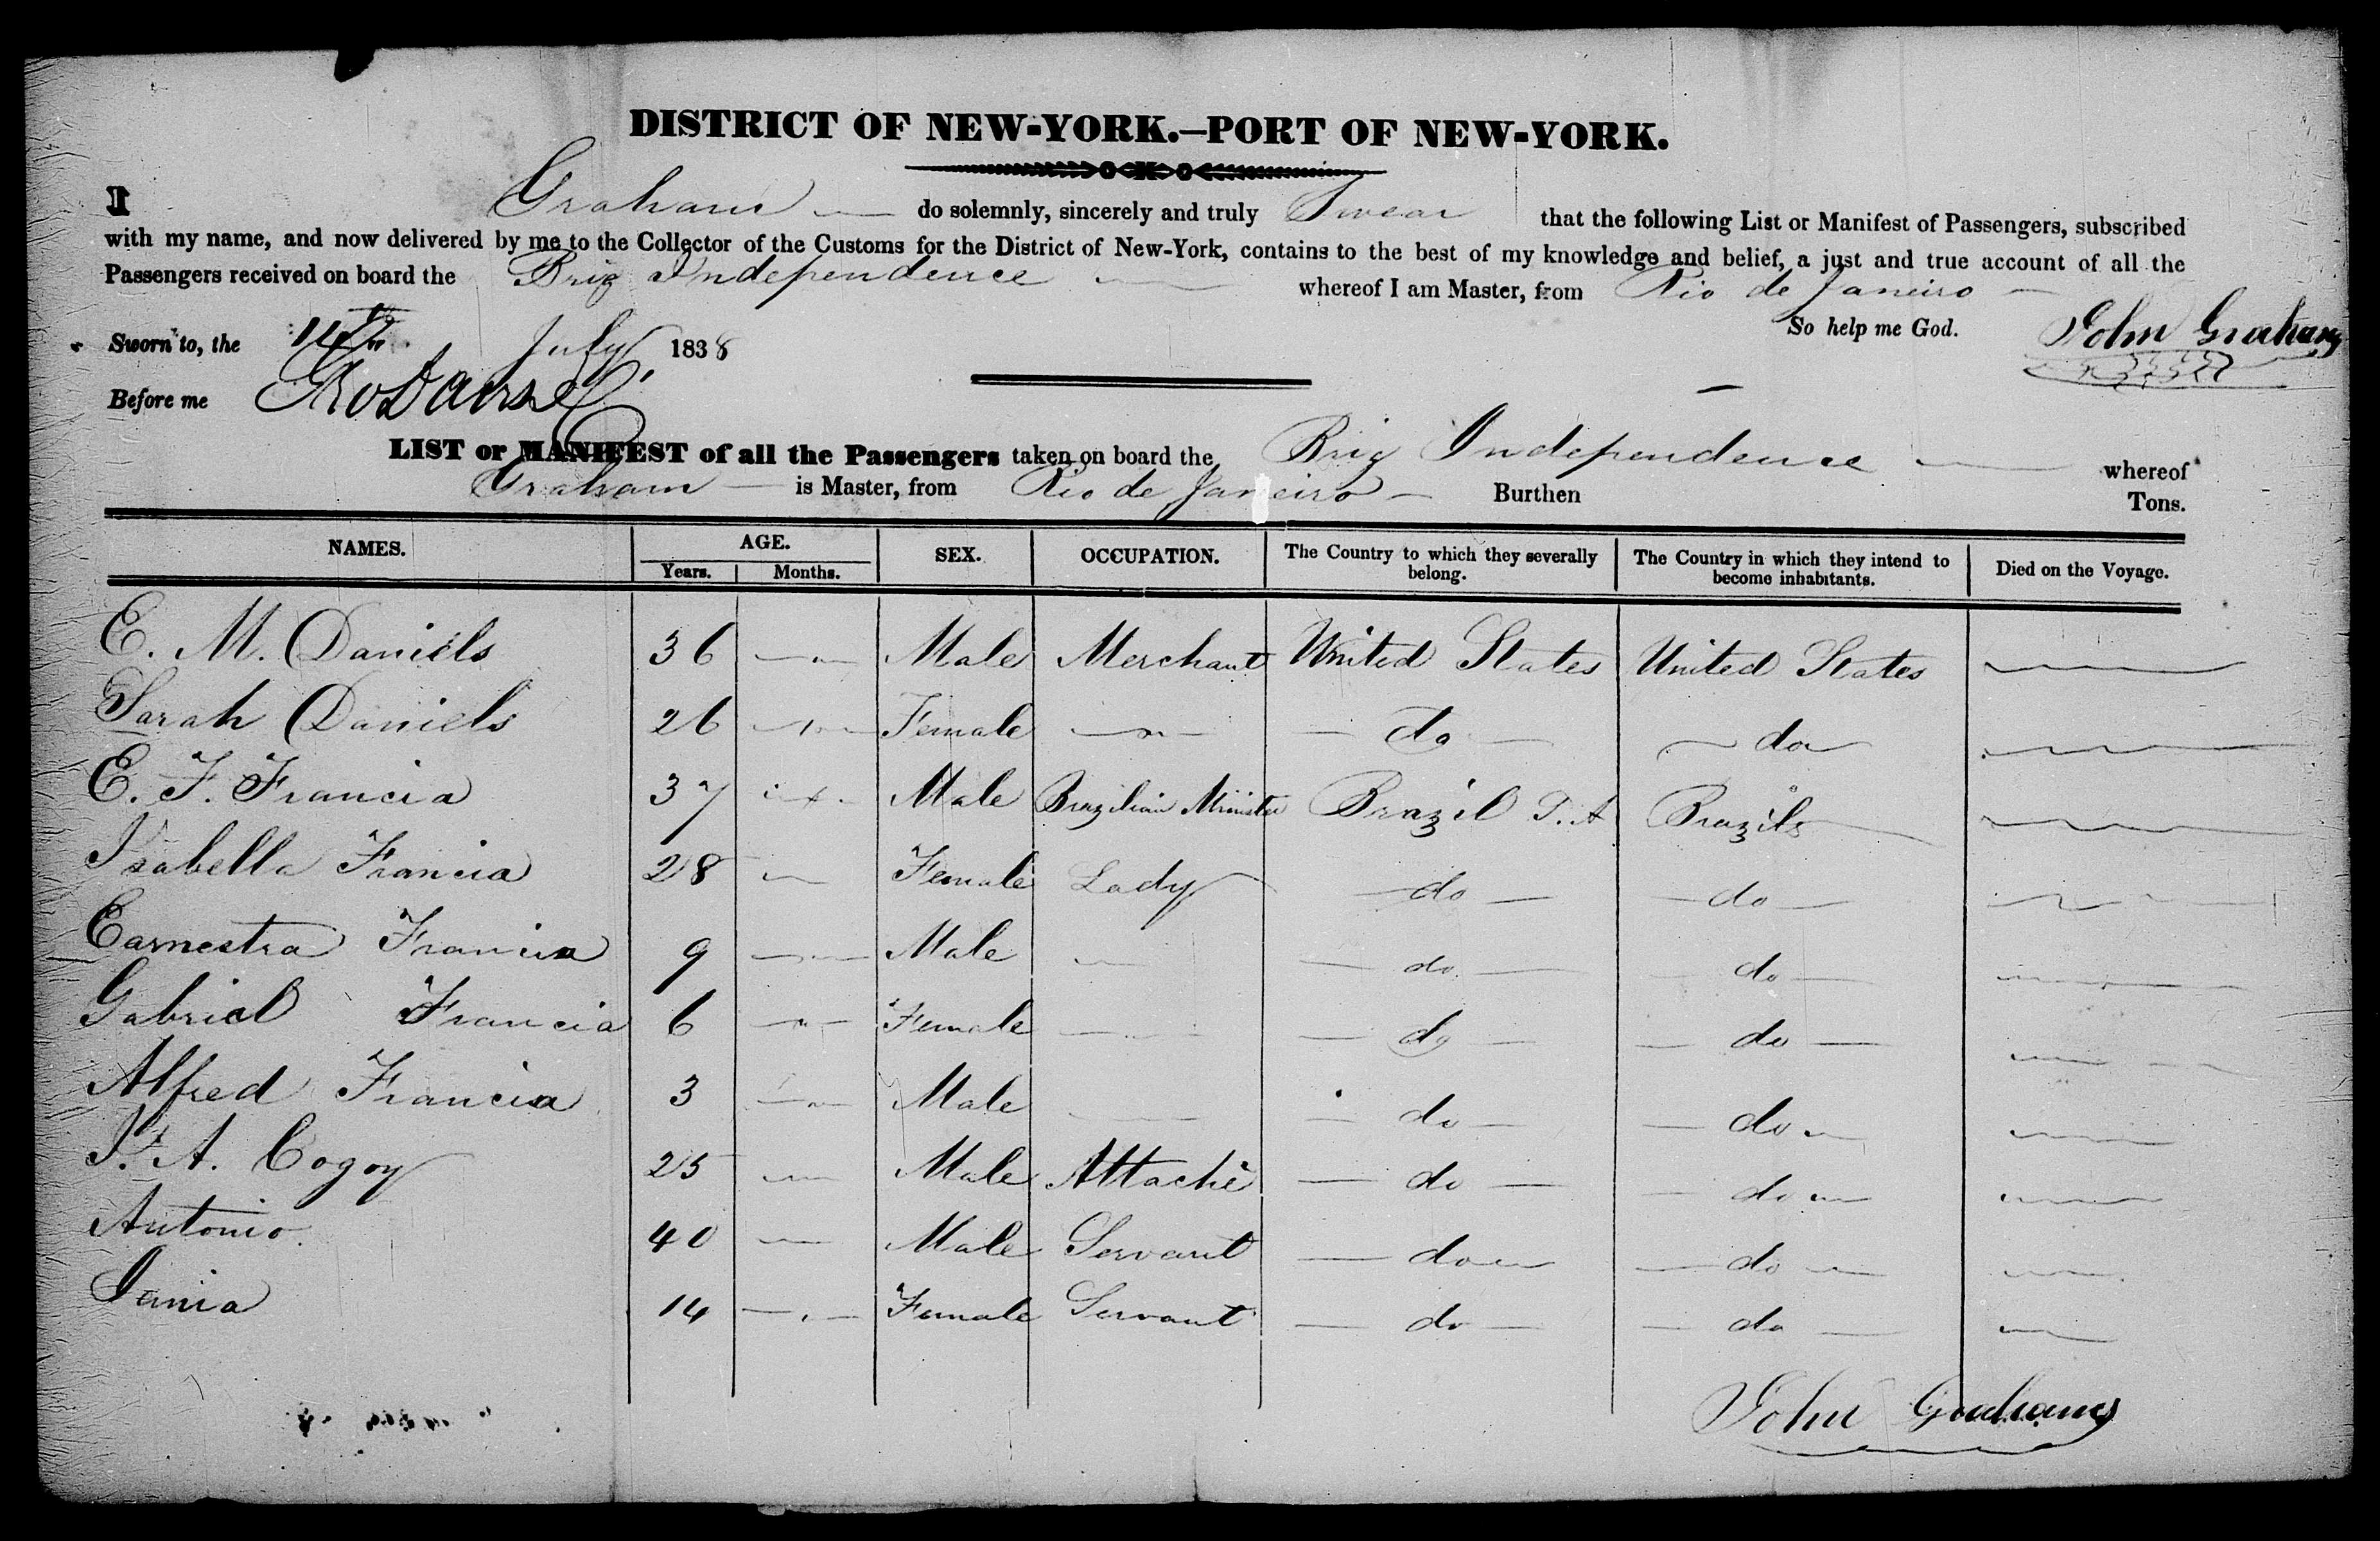 DISTRICT OF NEW-YORK.—PORT OF NEW-YORK.
I Graham do solemnly, sincerely and truly Swear that the following List or Manifest of Passengers, subscribed
with my name, and now delivered by me to the Collector of the Customs for the District of New-York, contains to the best of my knowledge and belief, a just and true account of all the
Passengers received on board the Brig Independence whereof I am Master, from Rio de Janeiro
So help me God. John Graham
Sworn to, the 11th July 1838
Before me
LIST or MANIFEST of all the Passengers taken on board the Brig Independence whereof
Graham is Master, from Rio de Janeiro Burthen Tons.
NAMES. AGE. Years. Months. SEX. OCCUPATION. The Country to which they severally belong. The Country in which they intend to become inhabitants. Died on the Voyage.
E. M. Daniels 36 Male Merchant United States United States
Sarah Daniels 26 Female do do
E. F. Francia 37 Male Brazilian Minister Brazil Brazils
Isabella Francia 28 Female Lady do do
Earnestra Francia 9 Male do do
Gabriel Francia 6 Female do do
Alfred Francia 3 Male do do
A. Cogoy 25 Male Attaché do do
Antonio 40 Male Servant do do
14 Female Servant do do
John Graham